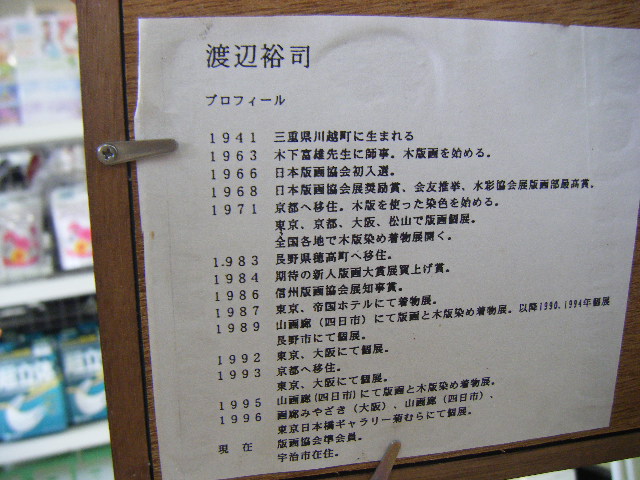 渡辺裕司
プロフィール
1941 三重県川越町に生まれる
1963 木下富雄先生に師事。木版画を始める。
1966 日本版画協会初入選。
1968 日本版画協会展奨励賞、会友推挙、水彩協会展版画部最高賞。
1971 京都へ移住。木版を使った染色を始める。
東京、京都、大阪、松山で版画個展。
全国各地で木版染め着物展開く。
1.983 長野県穂高町へ移住。
1984 期待の新人版画大賞展買上げ賞。
1986 信州版画協会展知事賞。
1987 東京、帝国ホテルにて着物展。
1989 山画廊（四日市）にて版画と木版染め着物展。以降1990.1994年個展
長野市にて個展。
1992 東京、大阪にて個展。
1993 京都へ移住。
東京、大阪にて個展。
1995 山画廊(四日市)にて版画と木版染め着物展。
1996 画廊みやざき（大阪）、山画廊（四日市）、
東京日本橋ギャラリー菊むらにて個展。
現在 版画協会準会員。
宇治市在住。